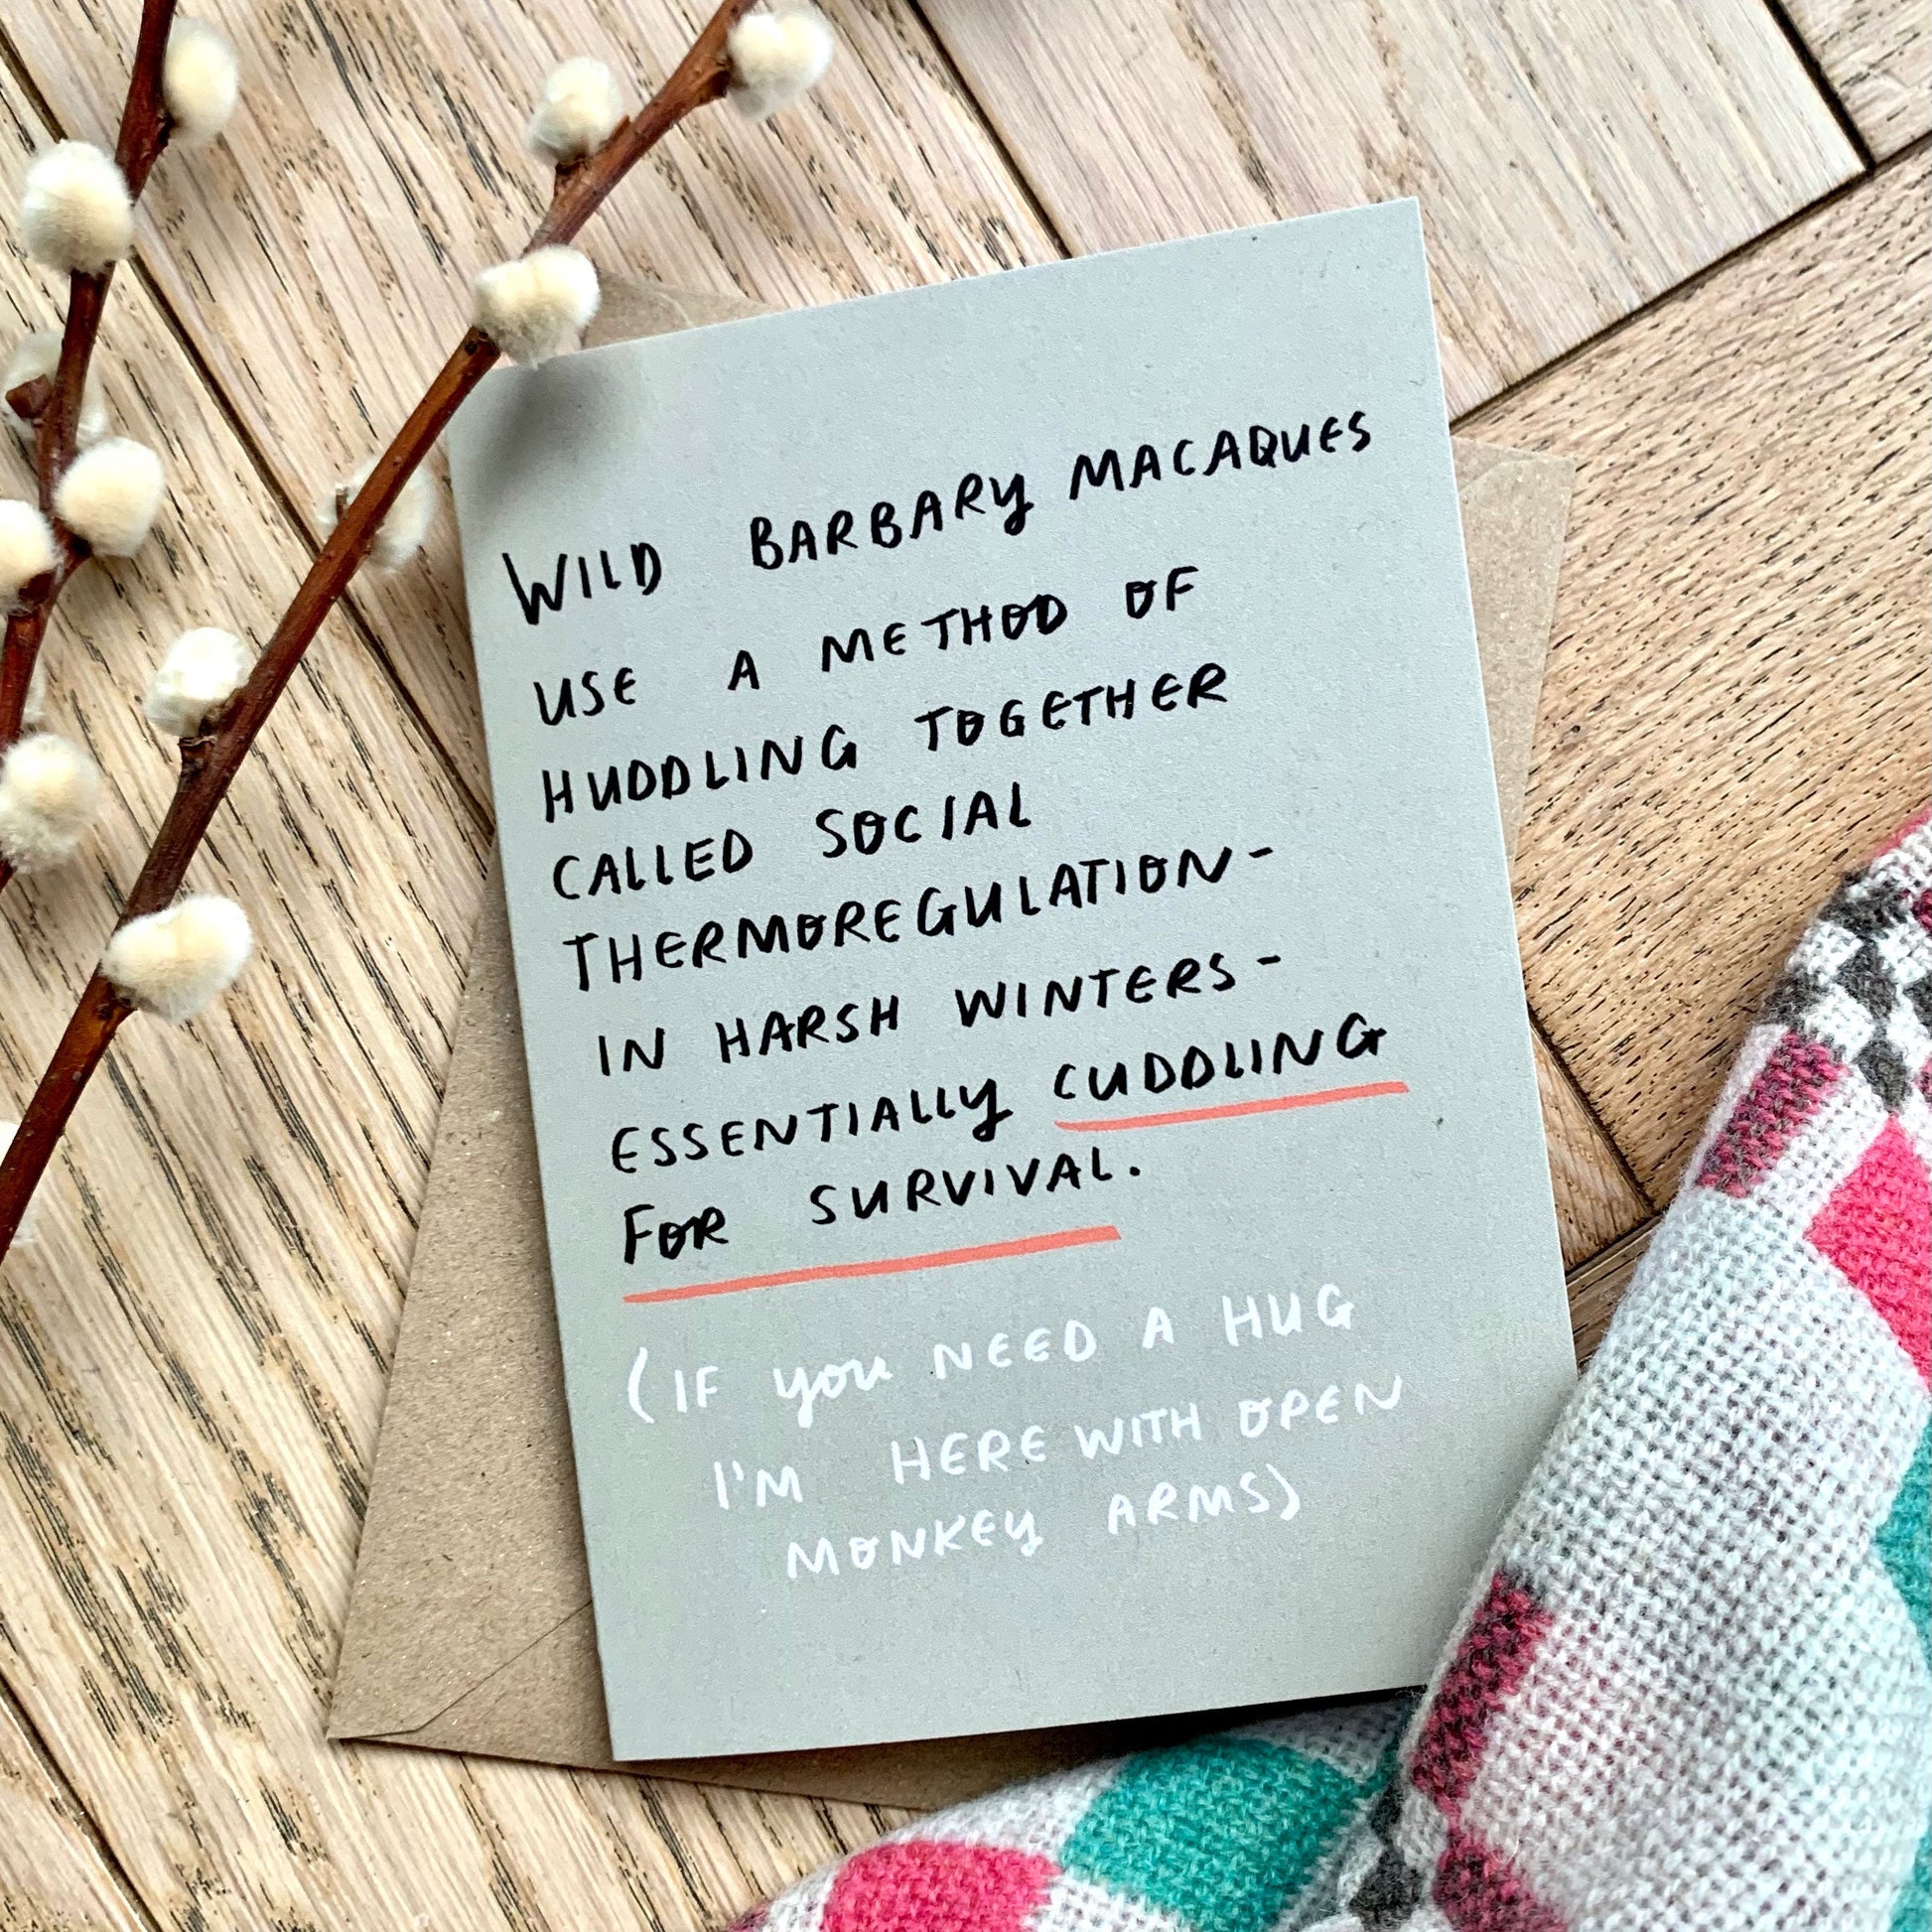 WILD BARBARY MACAQUES
USE A METHOD OF
HUDDLING TOGETHER
CALLED SOCIAL
THERMOREGULATION-
IN HARSH WINTERS-
ESSENTIALLY CUDDLING
FOR SURVIVAL.
(IF you NEED A HUG
I'M HERE WITH OPEN
MONKEY ARMS)